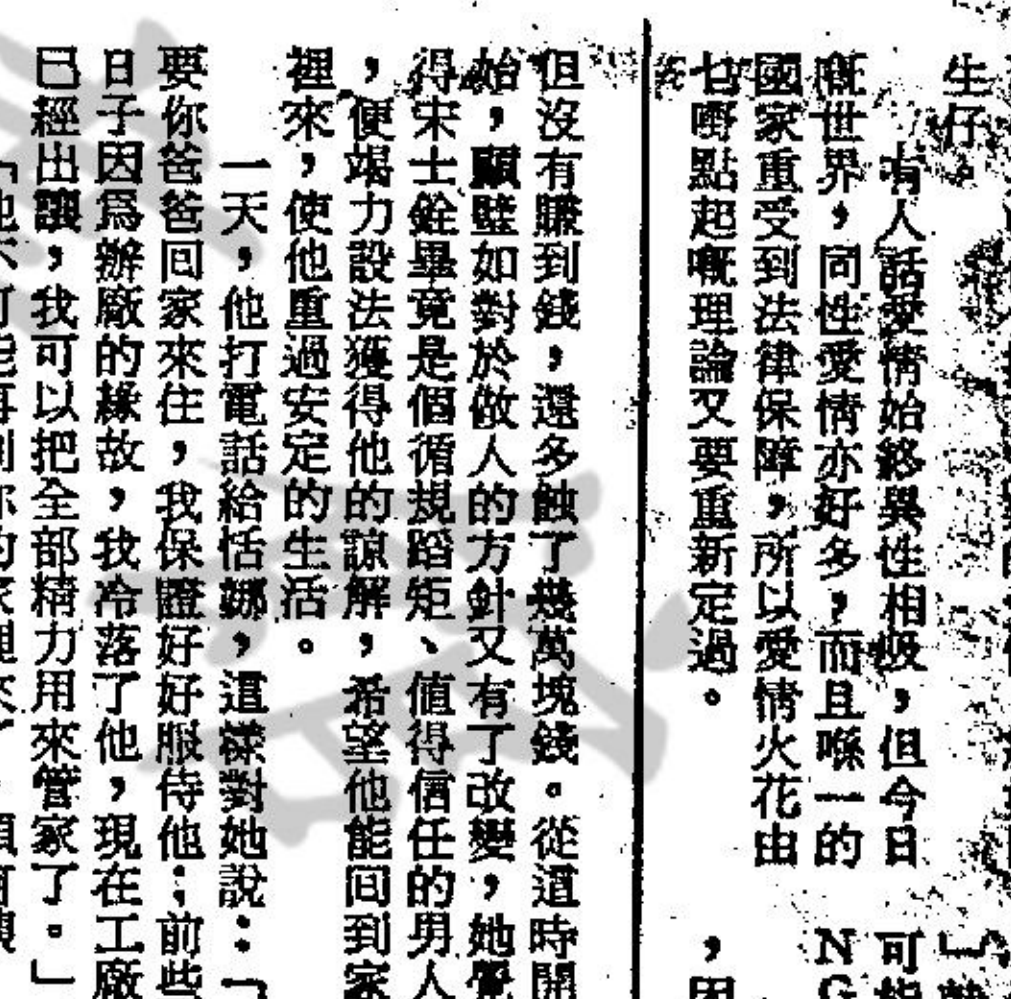 生仔。
有人話愛情始終異性相吸，但今日
嘅世界，同性愛情亦好多，而且喺一的
國家重受到法律保障，所以愛情火花由
乜嘢點起嘅理論又要重新定過。
可能
NG
，因
但沒有賺到錢，還多蝕了幾萬塊錢。從這時開
始，顧璧如對於做人的方針又有了改變，她覺
得宋士銓畢竟是個循規蹈矩、値得信任的男人
，便竭力設法獲得他的諒解，希望他能回到家
裡來，使他重過安定的生活。
一天，他打電話給恬娜，這樣對她說：「
要你爸爸回家來住，我保證好好服侍他；前些
日子因爲辦廠的緣故，我冷落了他，現在工廠
已經出讓，我可以把全部精力用來管家了。」